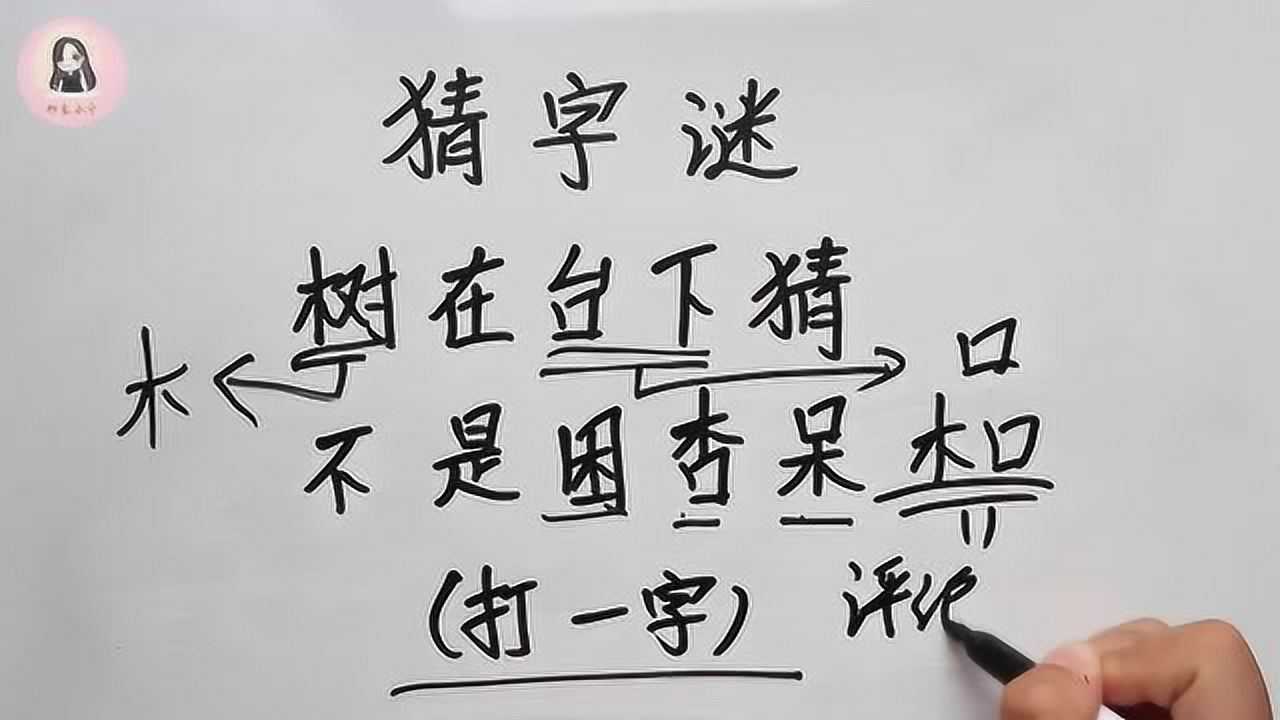 猜字谜
树在台下猜
木 口
不是困杏呆 木口
(打一字) 评论